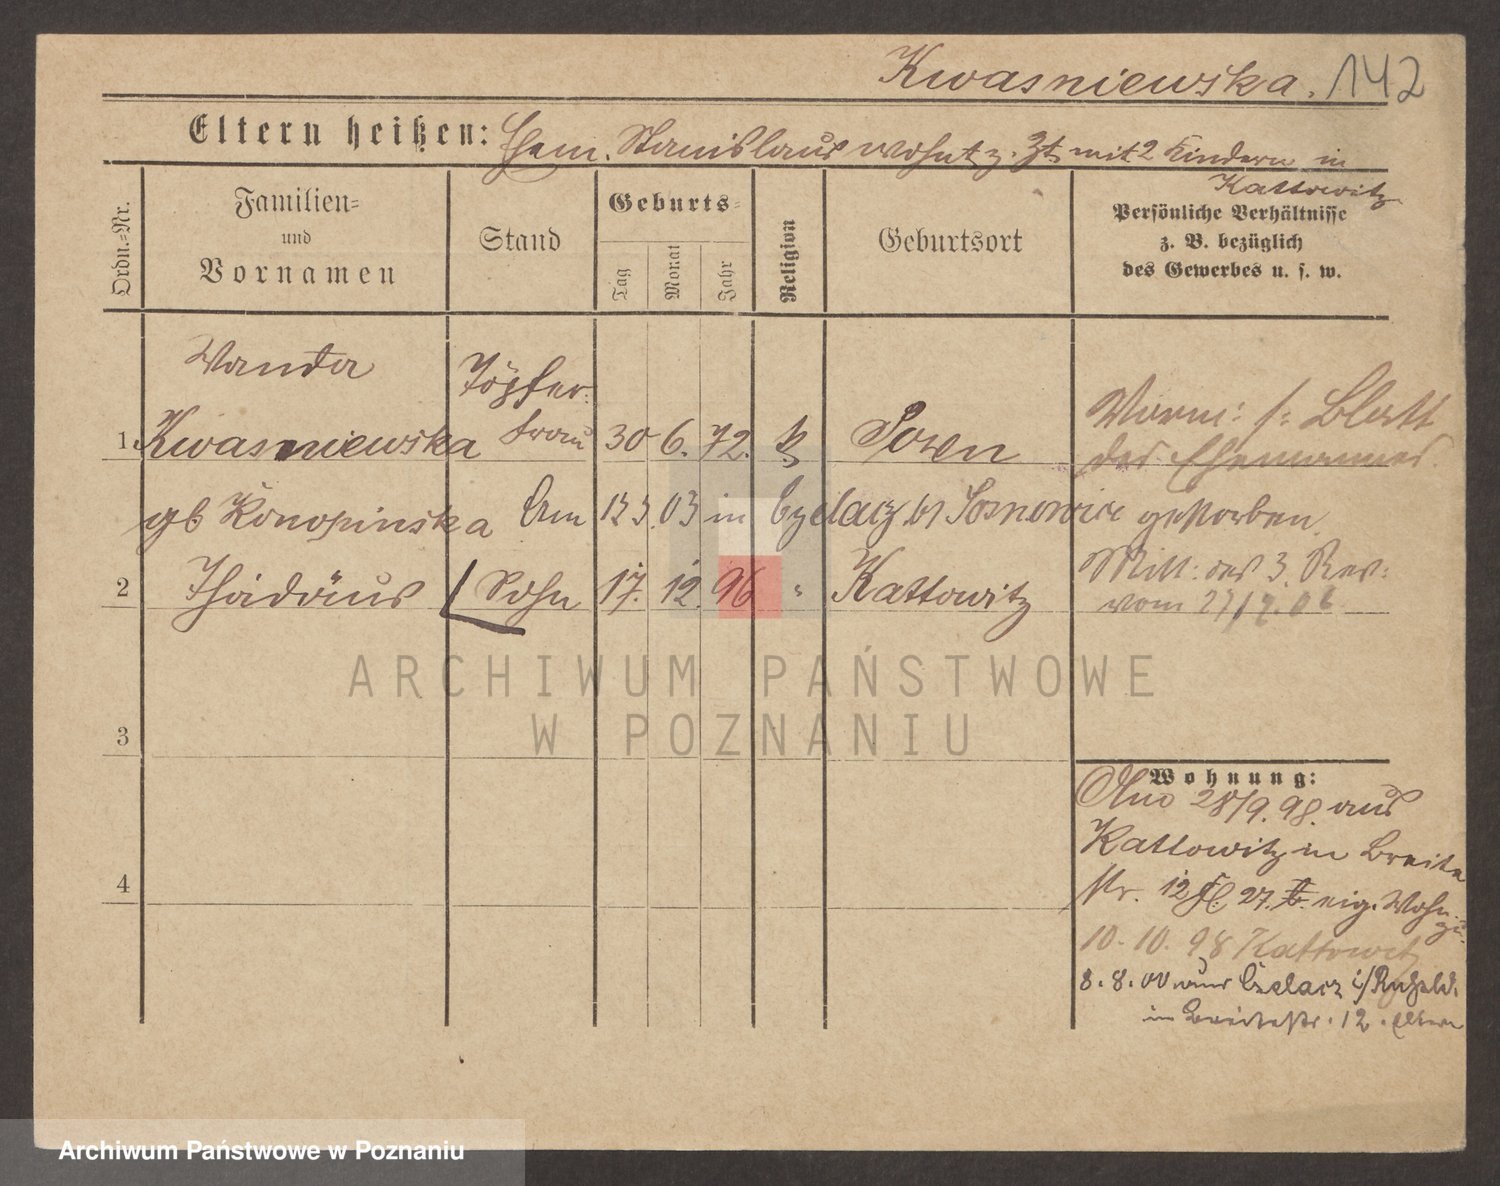 Kwasniewska. 142
Eltern heißen: Ehem. Stanislaus wohnt z. Zt. mit 2 Kindern in
Kattowitz
Ordn.-Nr.
Familien-
und
Vornamen
Stand
Geburts-
Tag
Monat
Jahr
Religion
Geburtsort
Persönliche Verhältnisse
z. B. bezüglich
des Gewerbes u. s. w.
Wanda
Töpfer-
1 Kwasniewska frau 30 6. 72. k Posen
gb Konopinska Am 03 in Czelacz b/ Sosnowice gestorben.
2 Thadäus Sohn 17. 12. 96 " Kattowitz
Verm: s: Blatt
des Ehemannes.
Mitt: des 3. Rev:
vom
ARCHIWUM PAŃSTWOWE
W POZNANIU
3
4
Wohnung:
28/9. 98. aus
Kattowitz in Breite
str. 12 27. eig. Wohn-
10. 10. 98 Kattowitz
8. 8. 00 aus Czelacz i/
in Breitestr. 12. Eltern
Archiwum Państwowe w Poznaniu